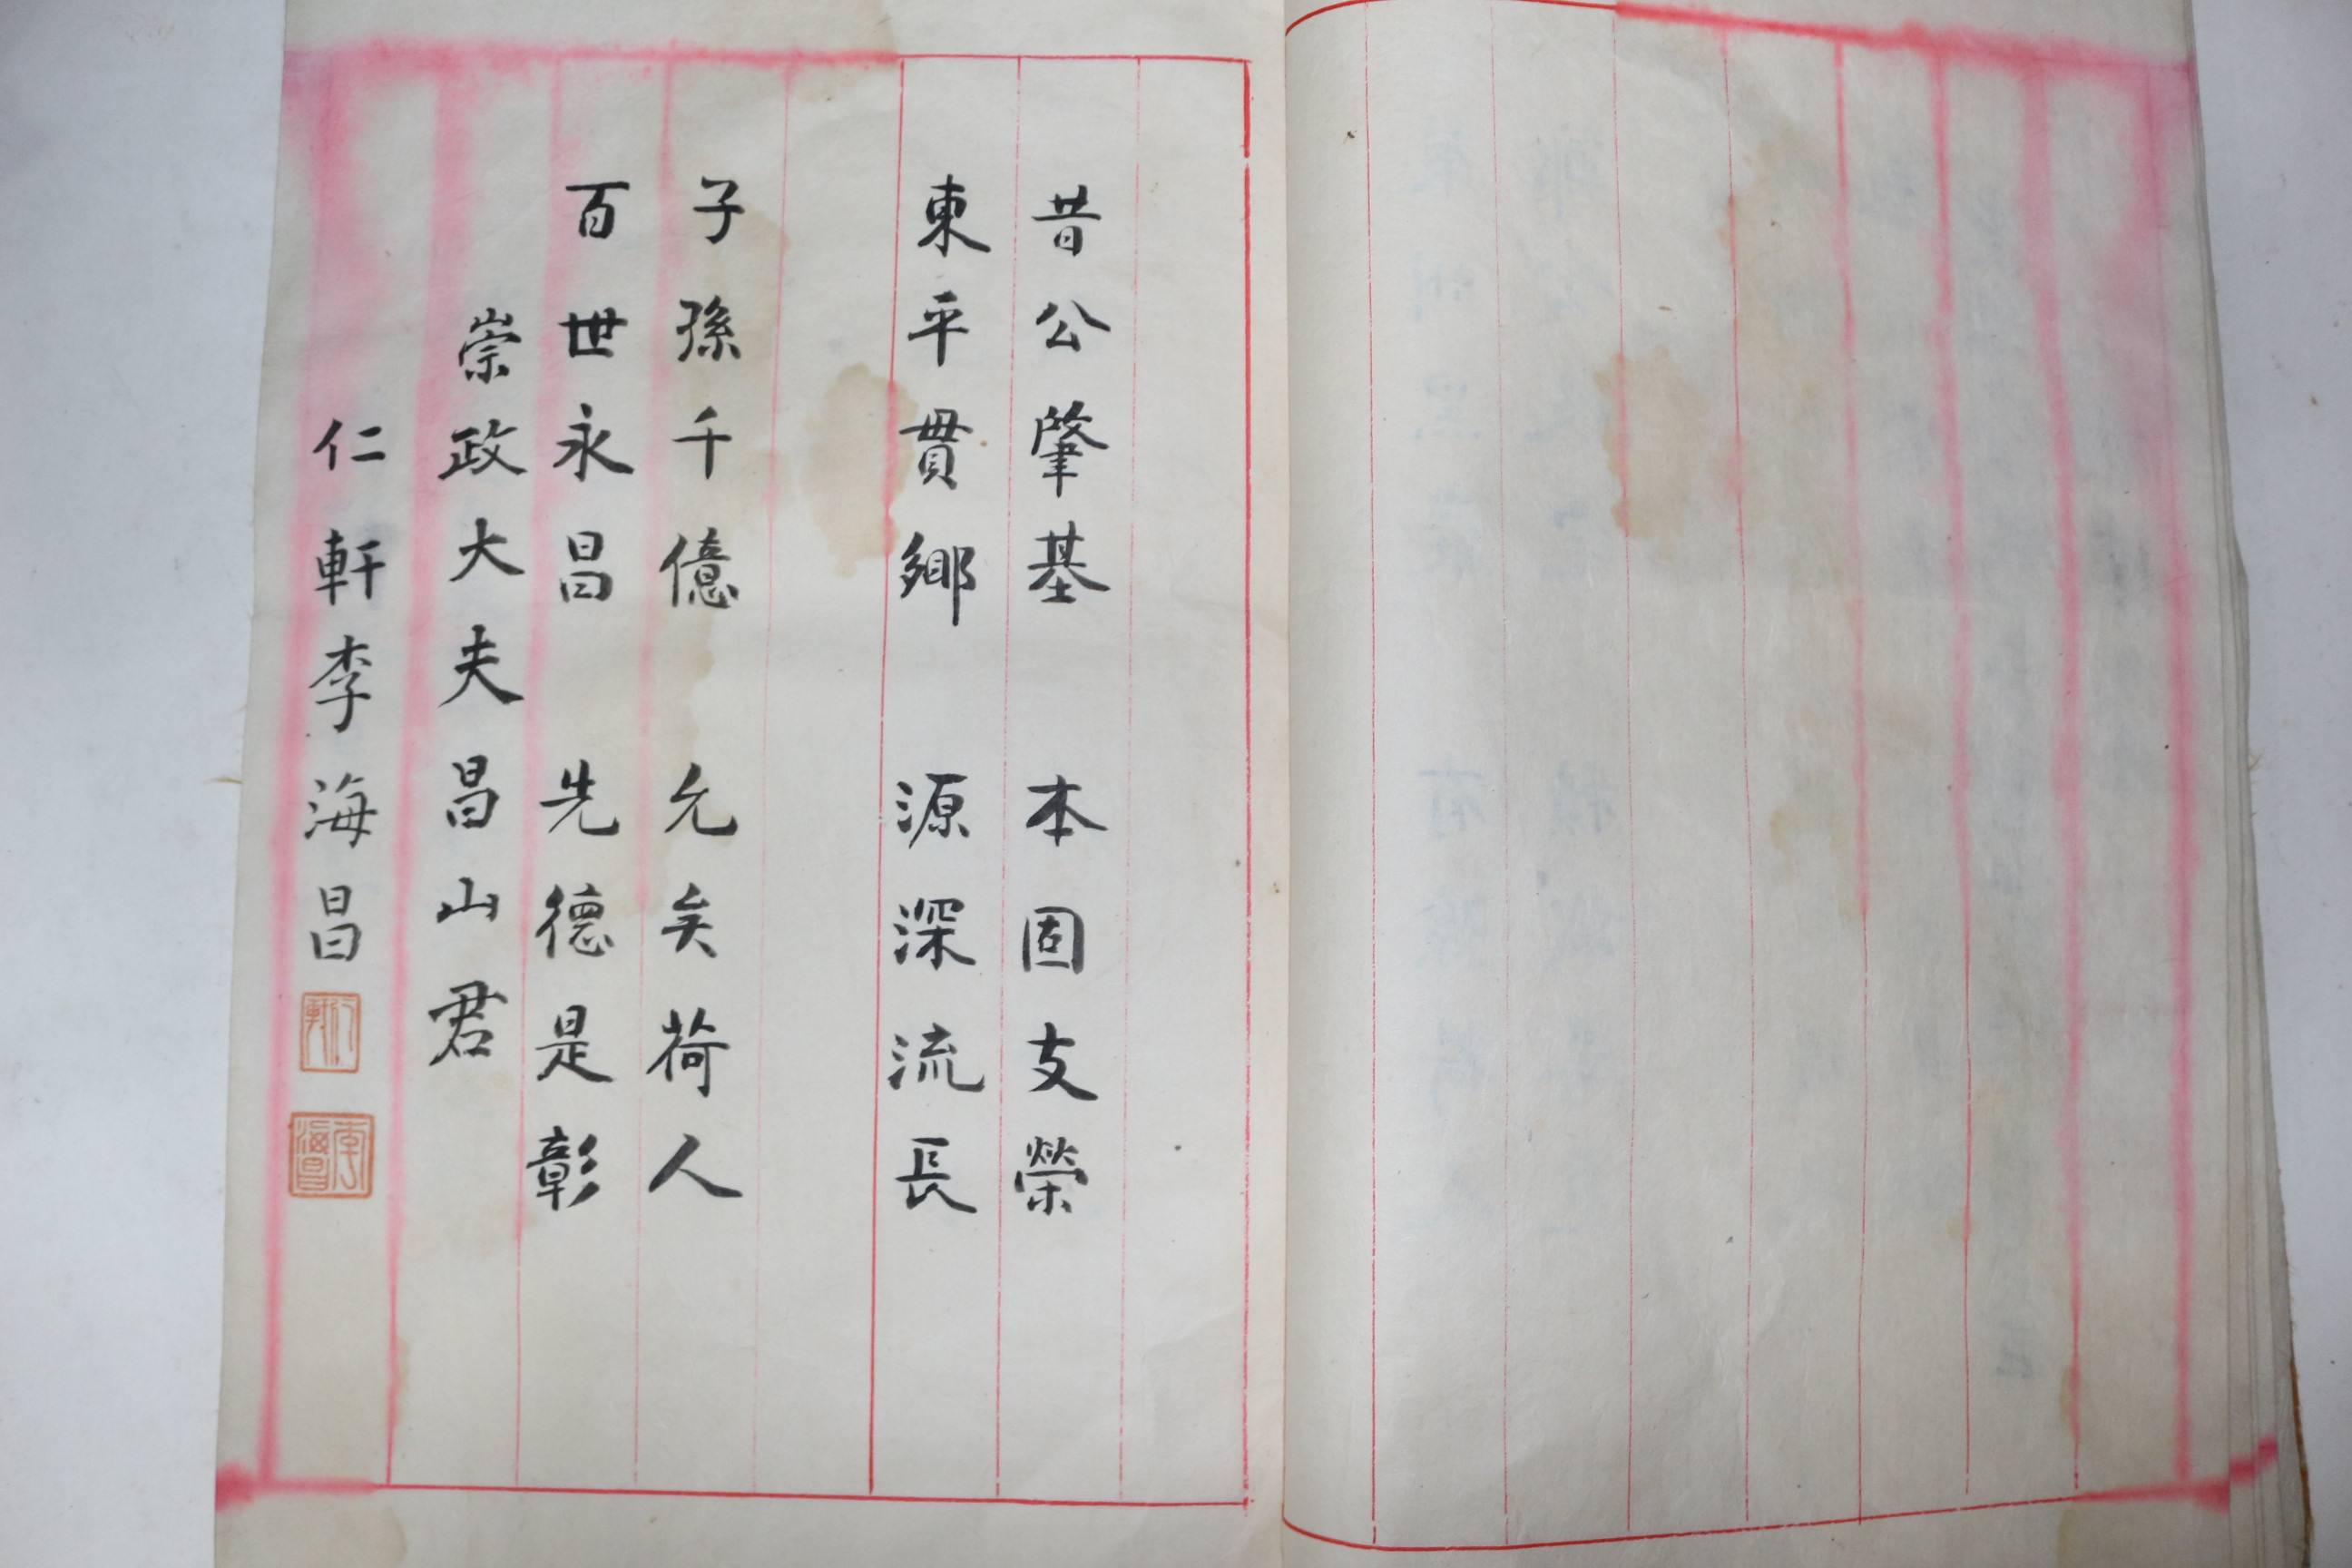 昔公肇基 本固支榮
東平貫鄉 源深流長
子孫千億 允矣荷人
百世永昌 先德是彰
崇政大夫昌山君
仁軒李海昌
仁軒
李海昌